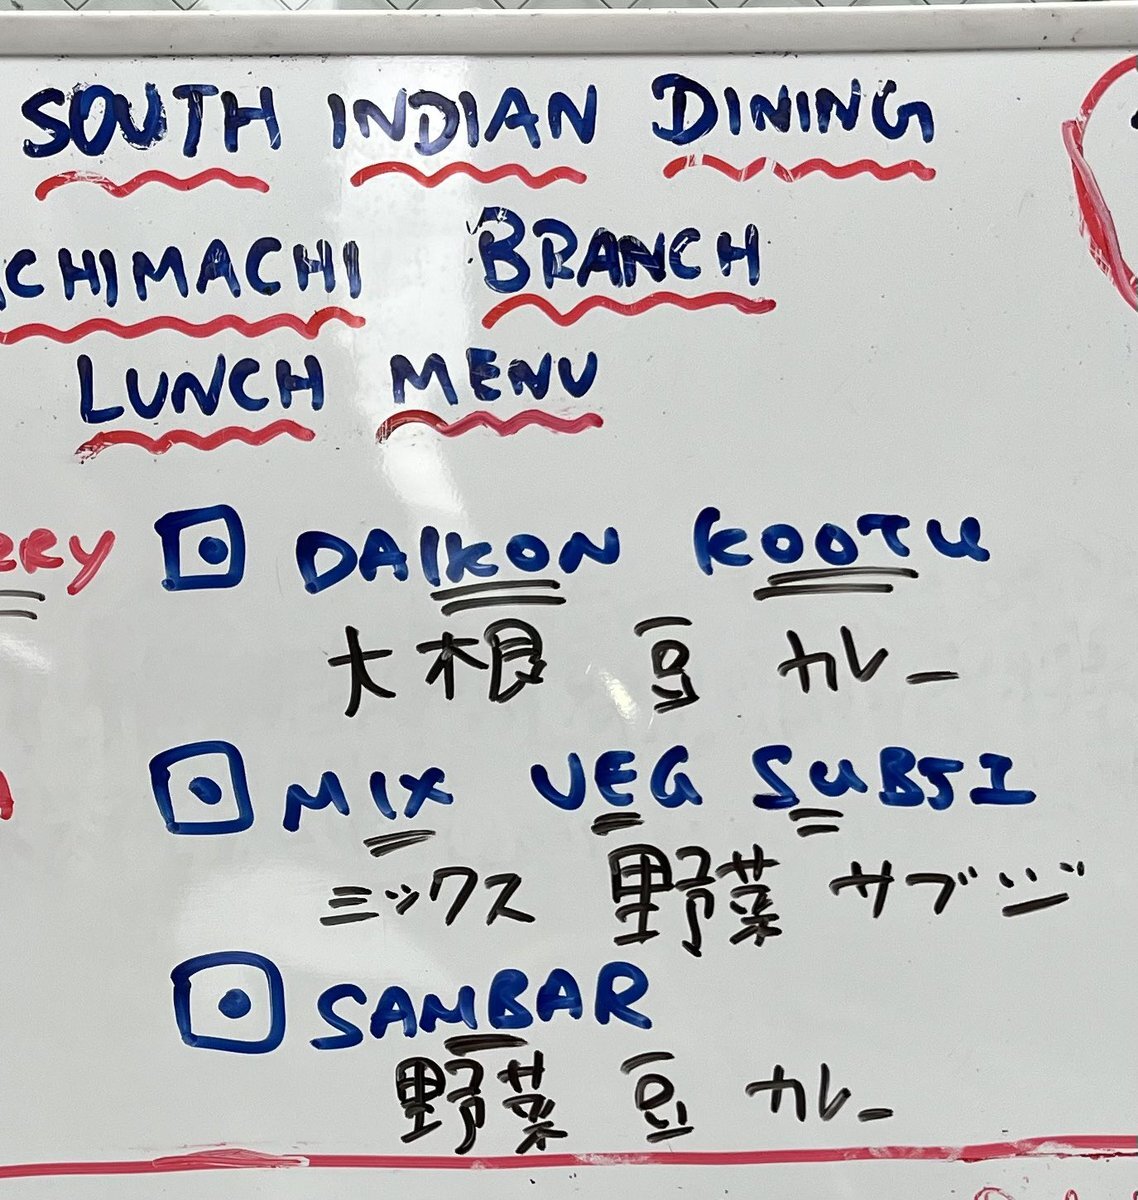 SOUTH INDIAN DINING
CHIMACHI BRANCH
LUNCH MENU
DAIKON KOOTU
大根 豆 カレー
MIX VEG SUBJI
ミックス 野菜 サブジ
SAMBAR
野菜 豆 カレー